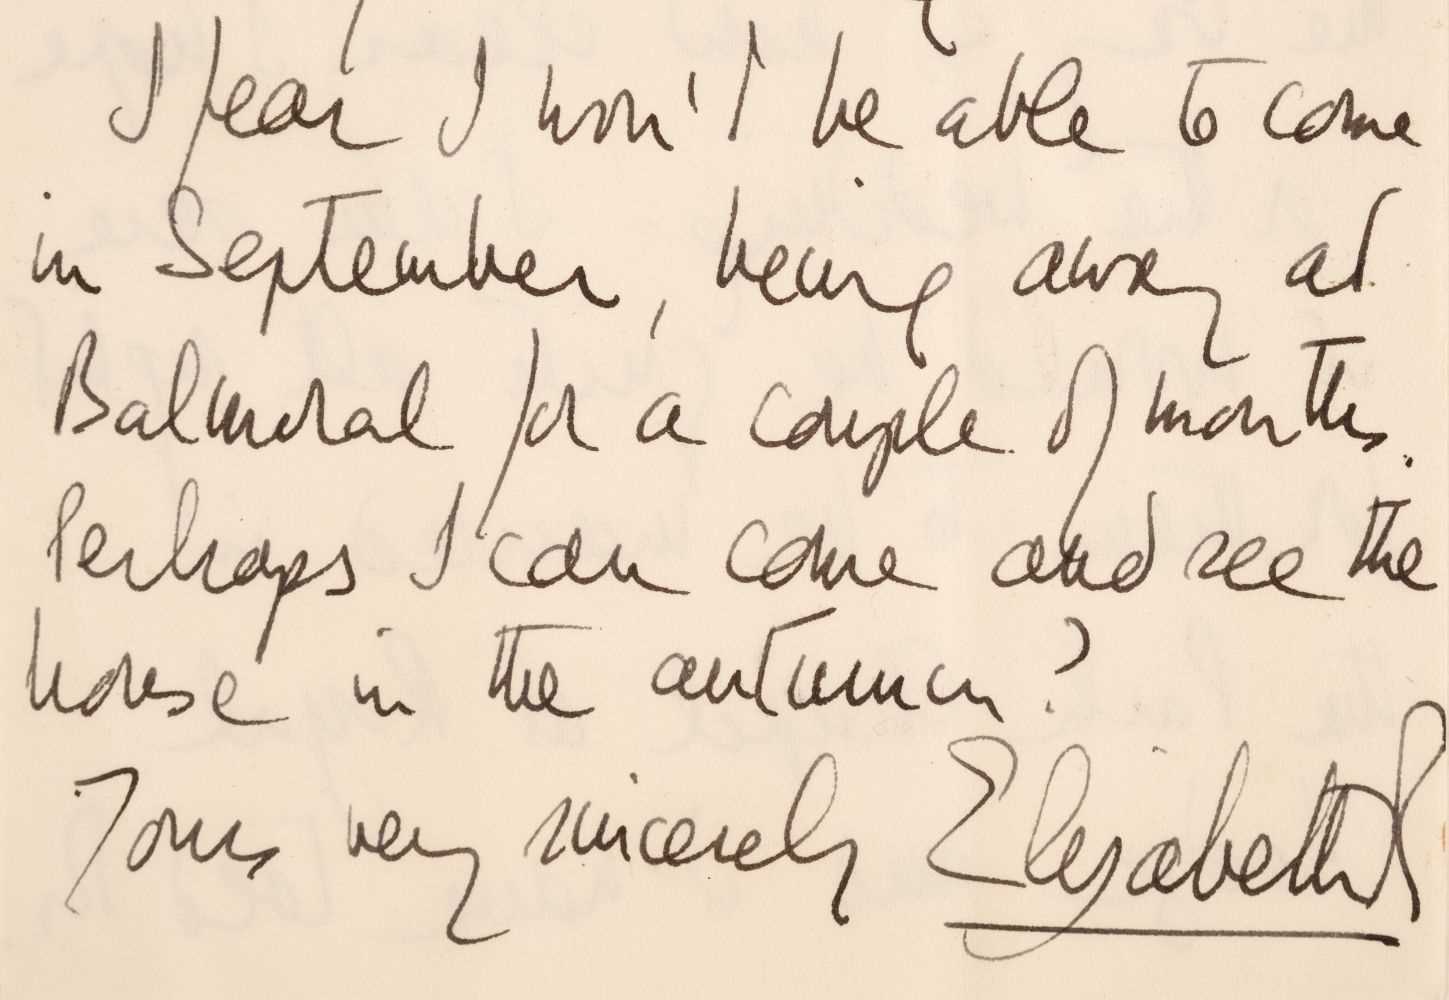 I fear I won't be able to come
in September, being away at
Balmoral for a couple of months.
Perhaps I can come and see the
house in the autumn?
Yours very sincerely Elizabeth R